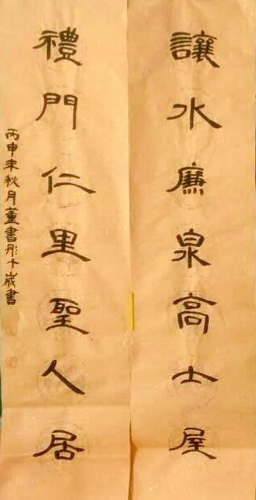 讓水廉泉高士屋
禮門仁里聖人居
丙申末秋月董書彤千歲書